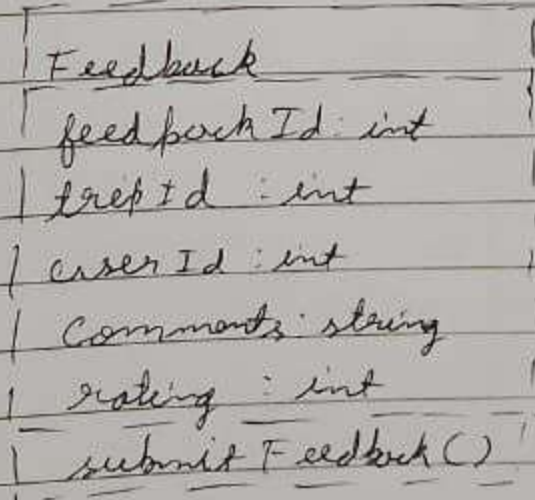 Feedback
feedbackId : int
tripId : int
userId : int
Comments : string
rating : int
submitFeedback()